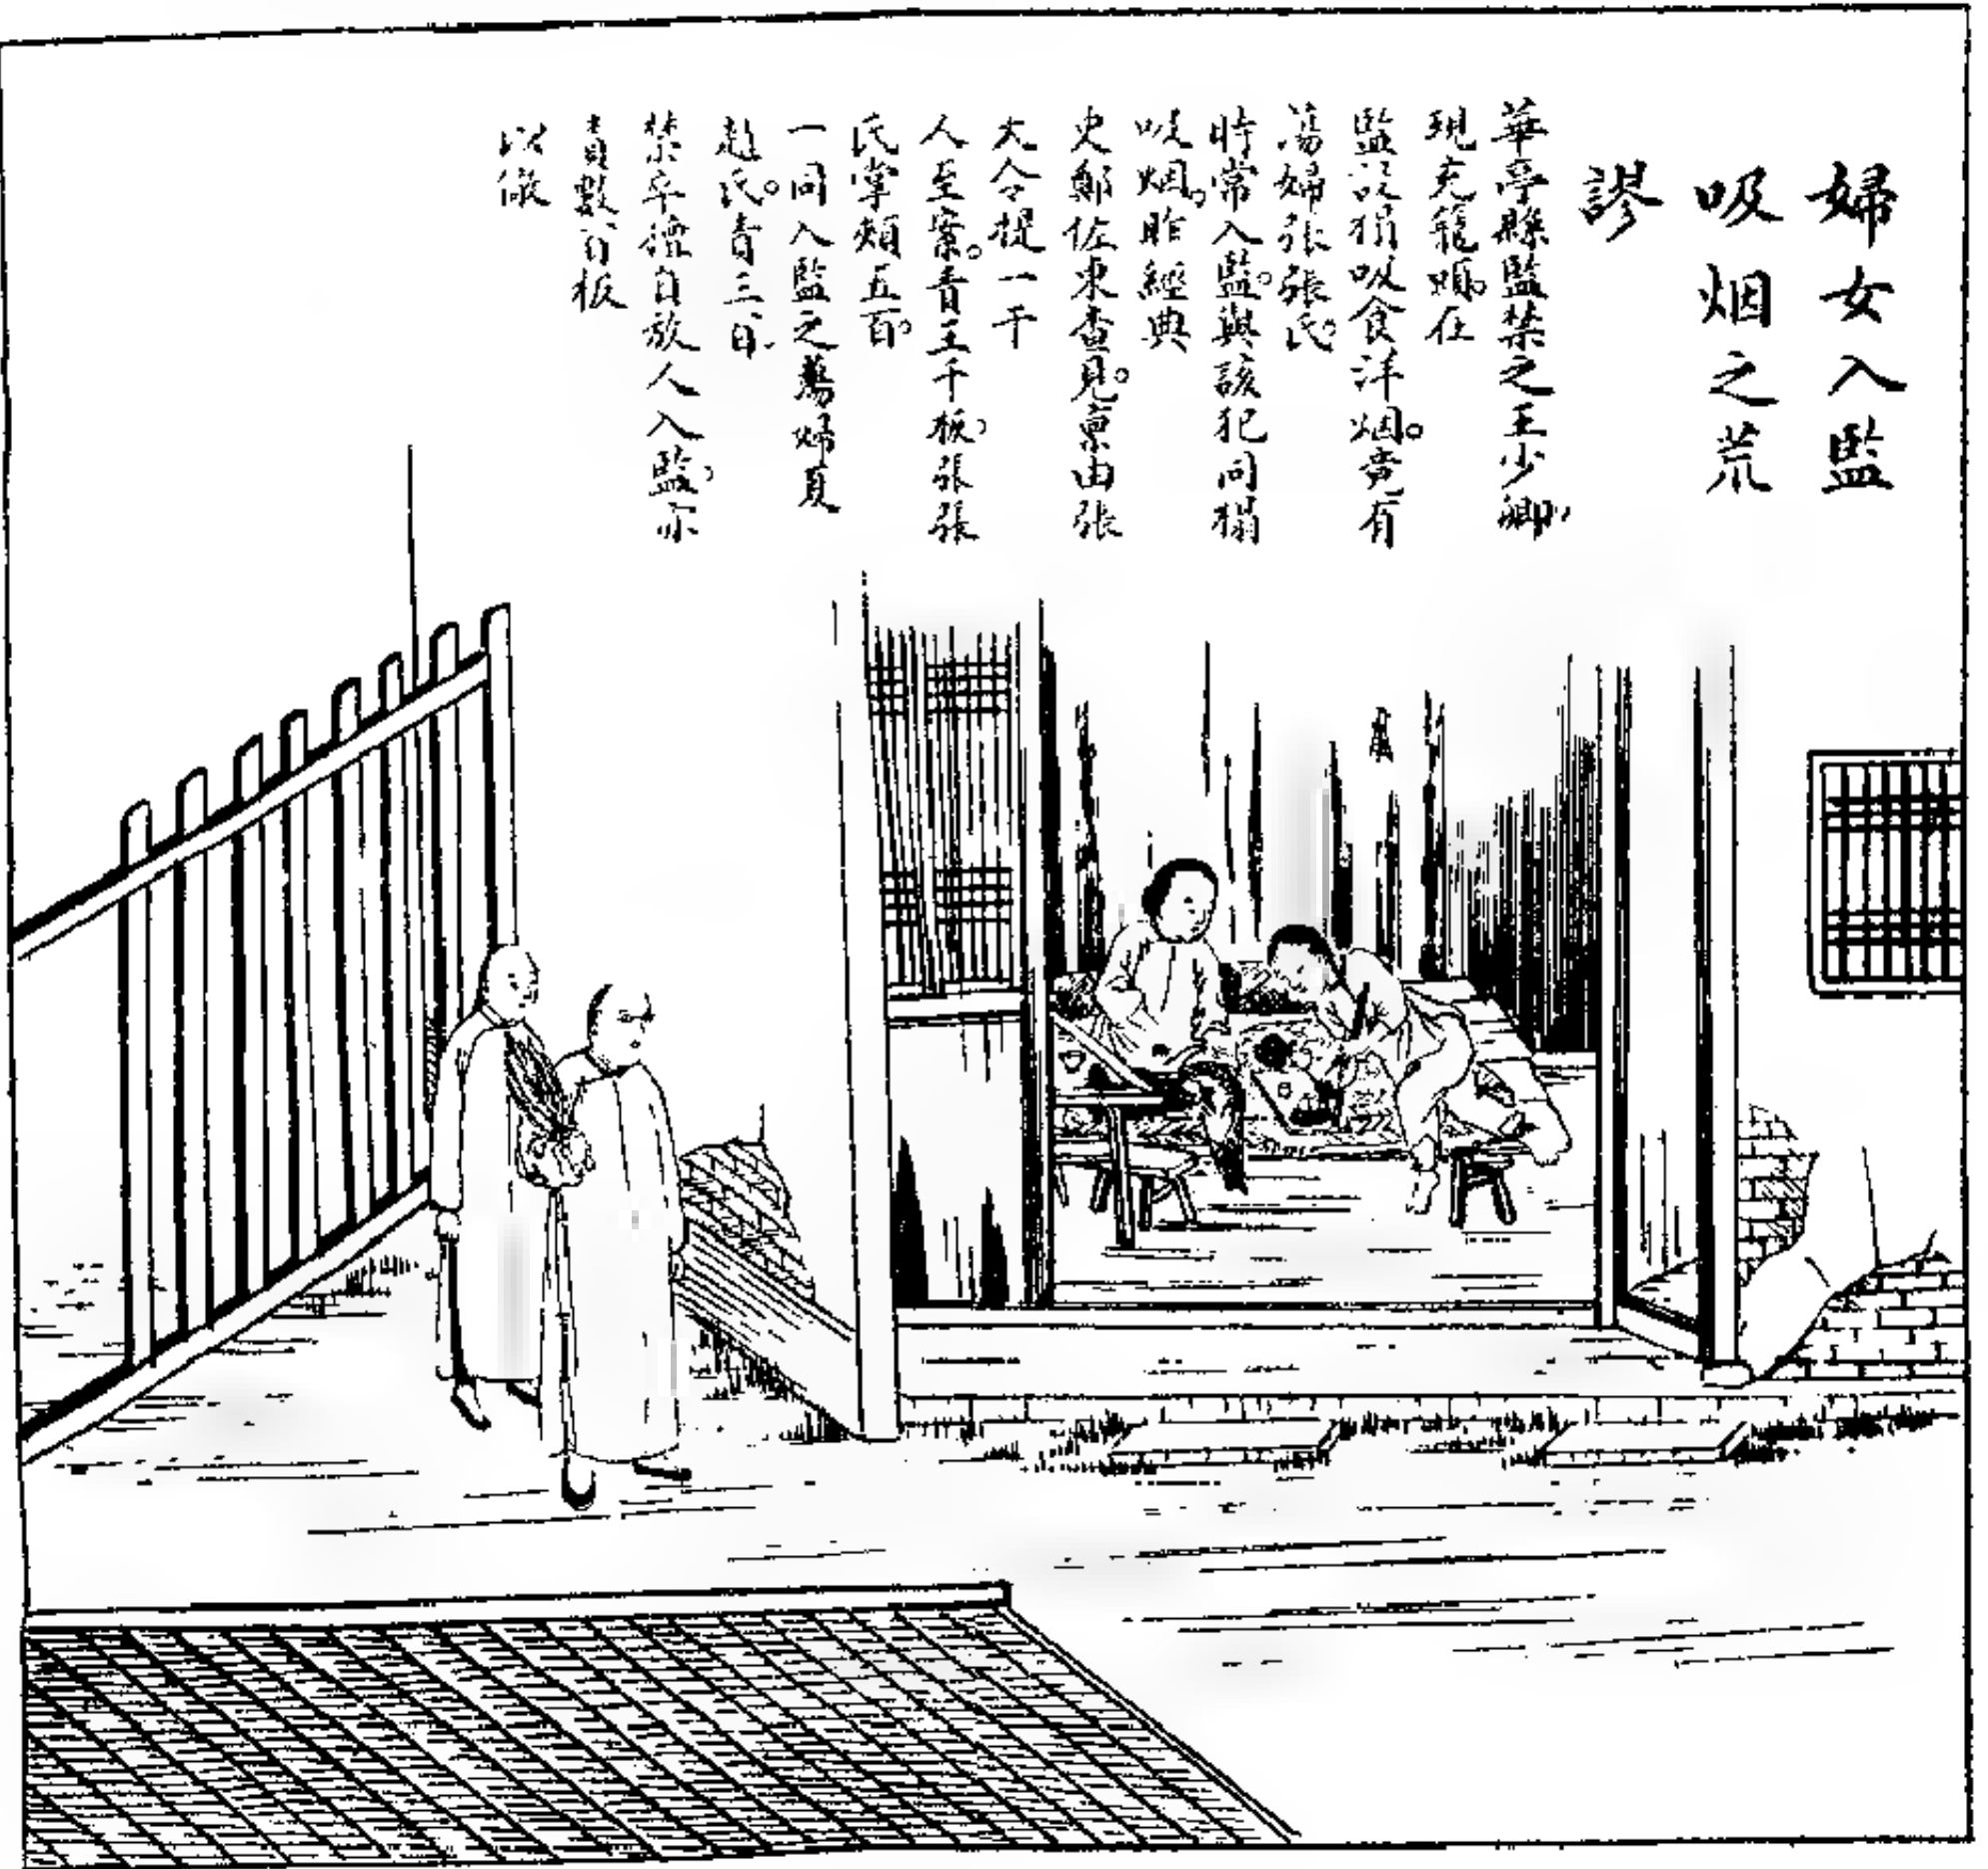 婦女入監
吸烟之荒
謬
華亭縣監禁之王少卿，
現充籠頭。在
監設榻吸食洋烟。竟有
蕩婦張張氏。
時常入監。與該犯同榻
吸烟。昨經典
史鄭佐東查見。稟由張
大令提一干
人至案。責王千板，張張
氏掌頰五百。
一同入監之蕩婦夏
趙氏。責三百
禁卒擅自放人入監，亦
責數百板
以儆